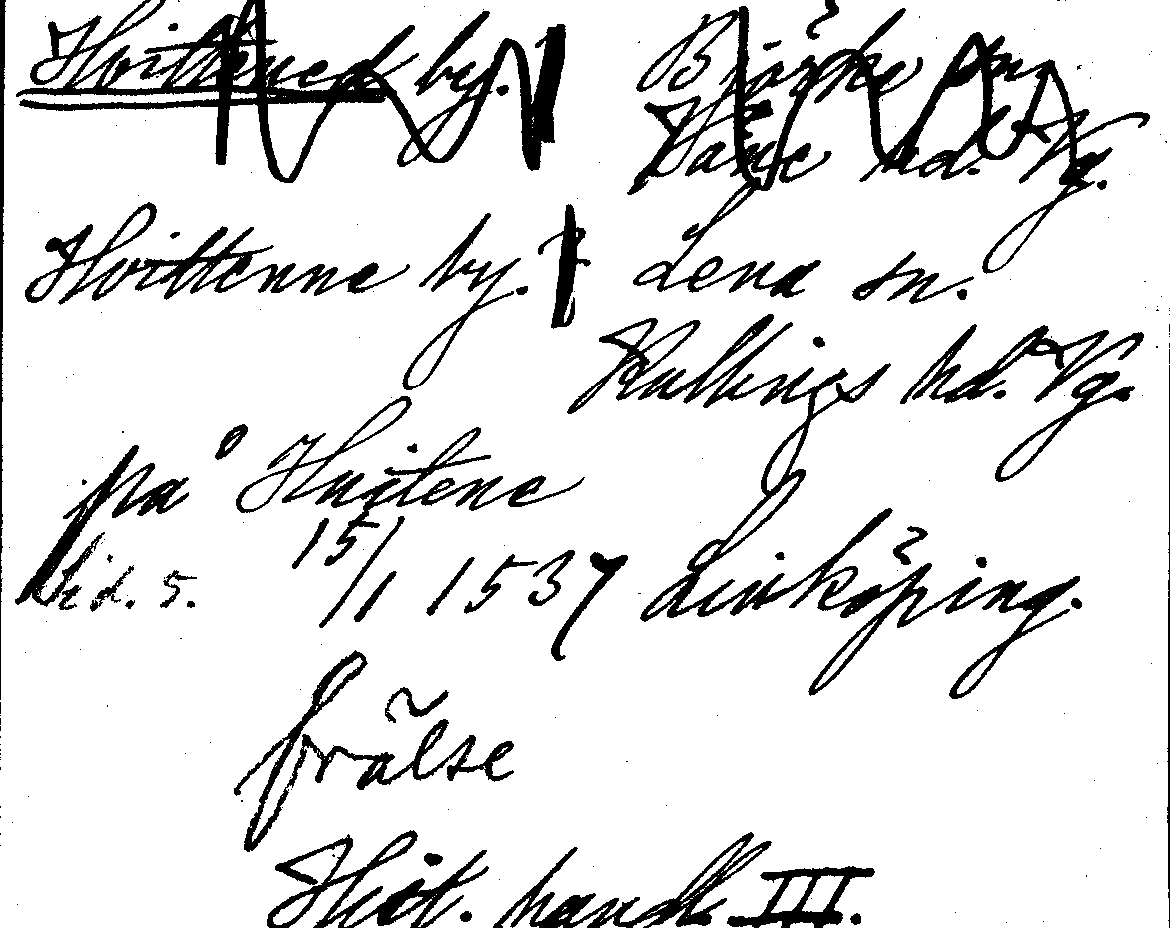 Hvittened by. Bjärke sn.
Väne hd. Vg.
Hvittenne by. Lena sn.
Kullings hd. Vg.
på Huitene
Sid. 5. 15/1 1537 Linköping.
frälse
Hist. handl. III.